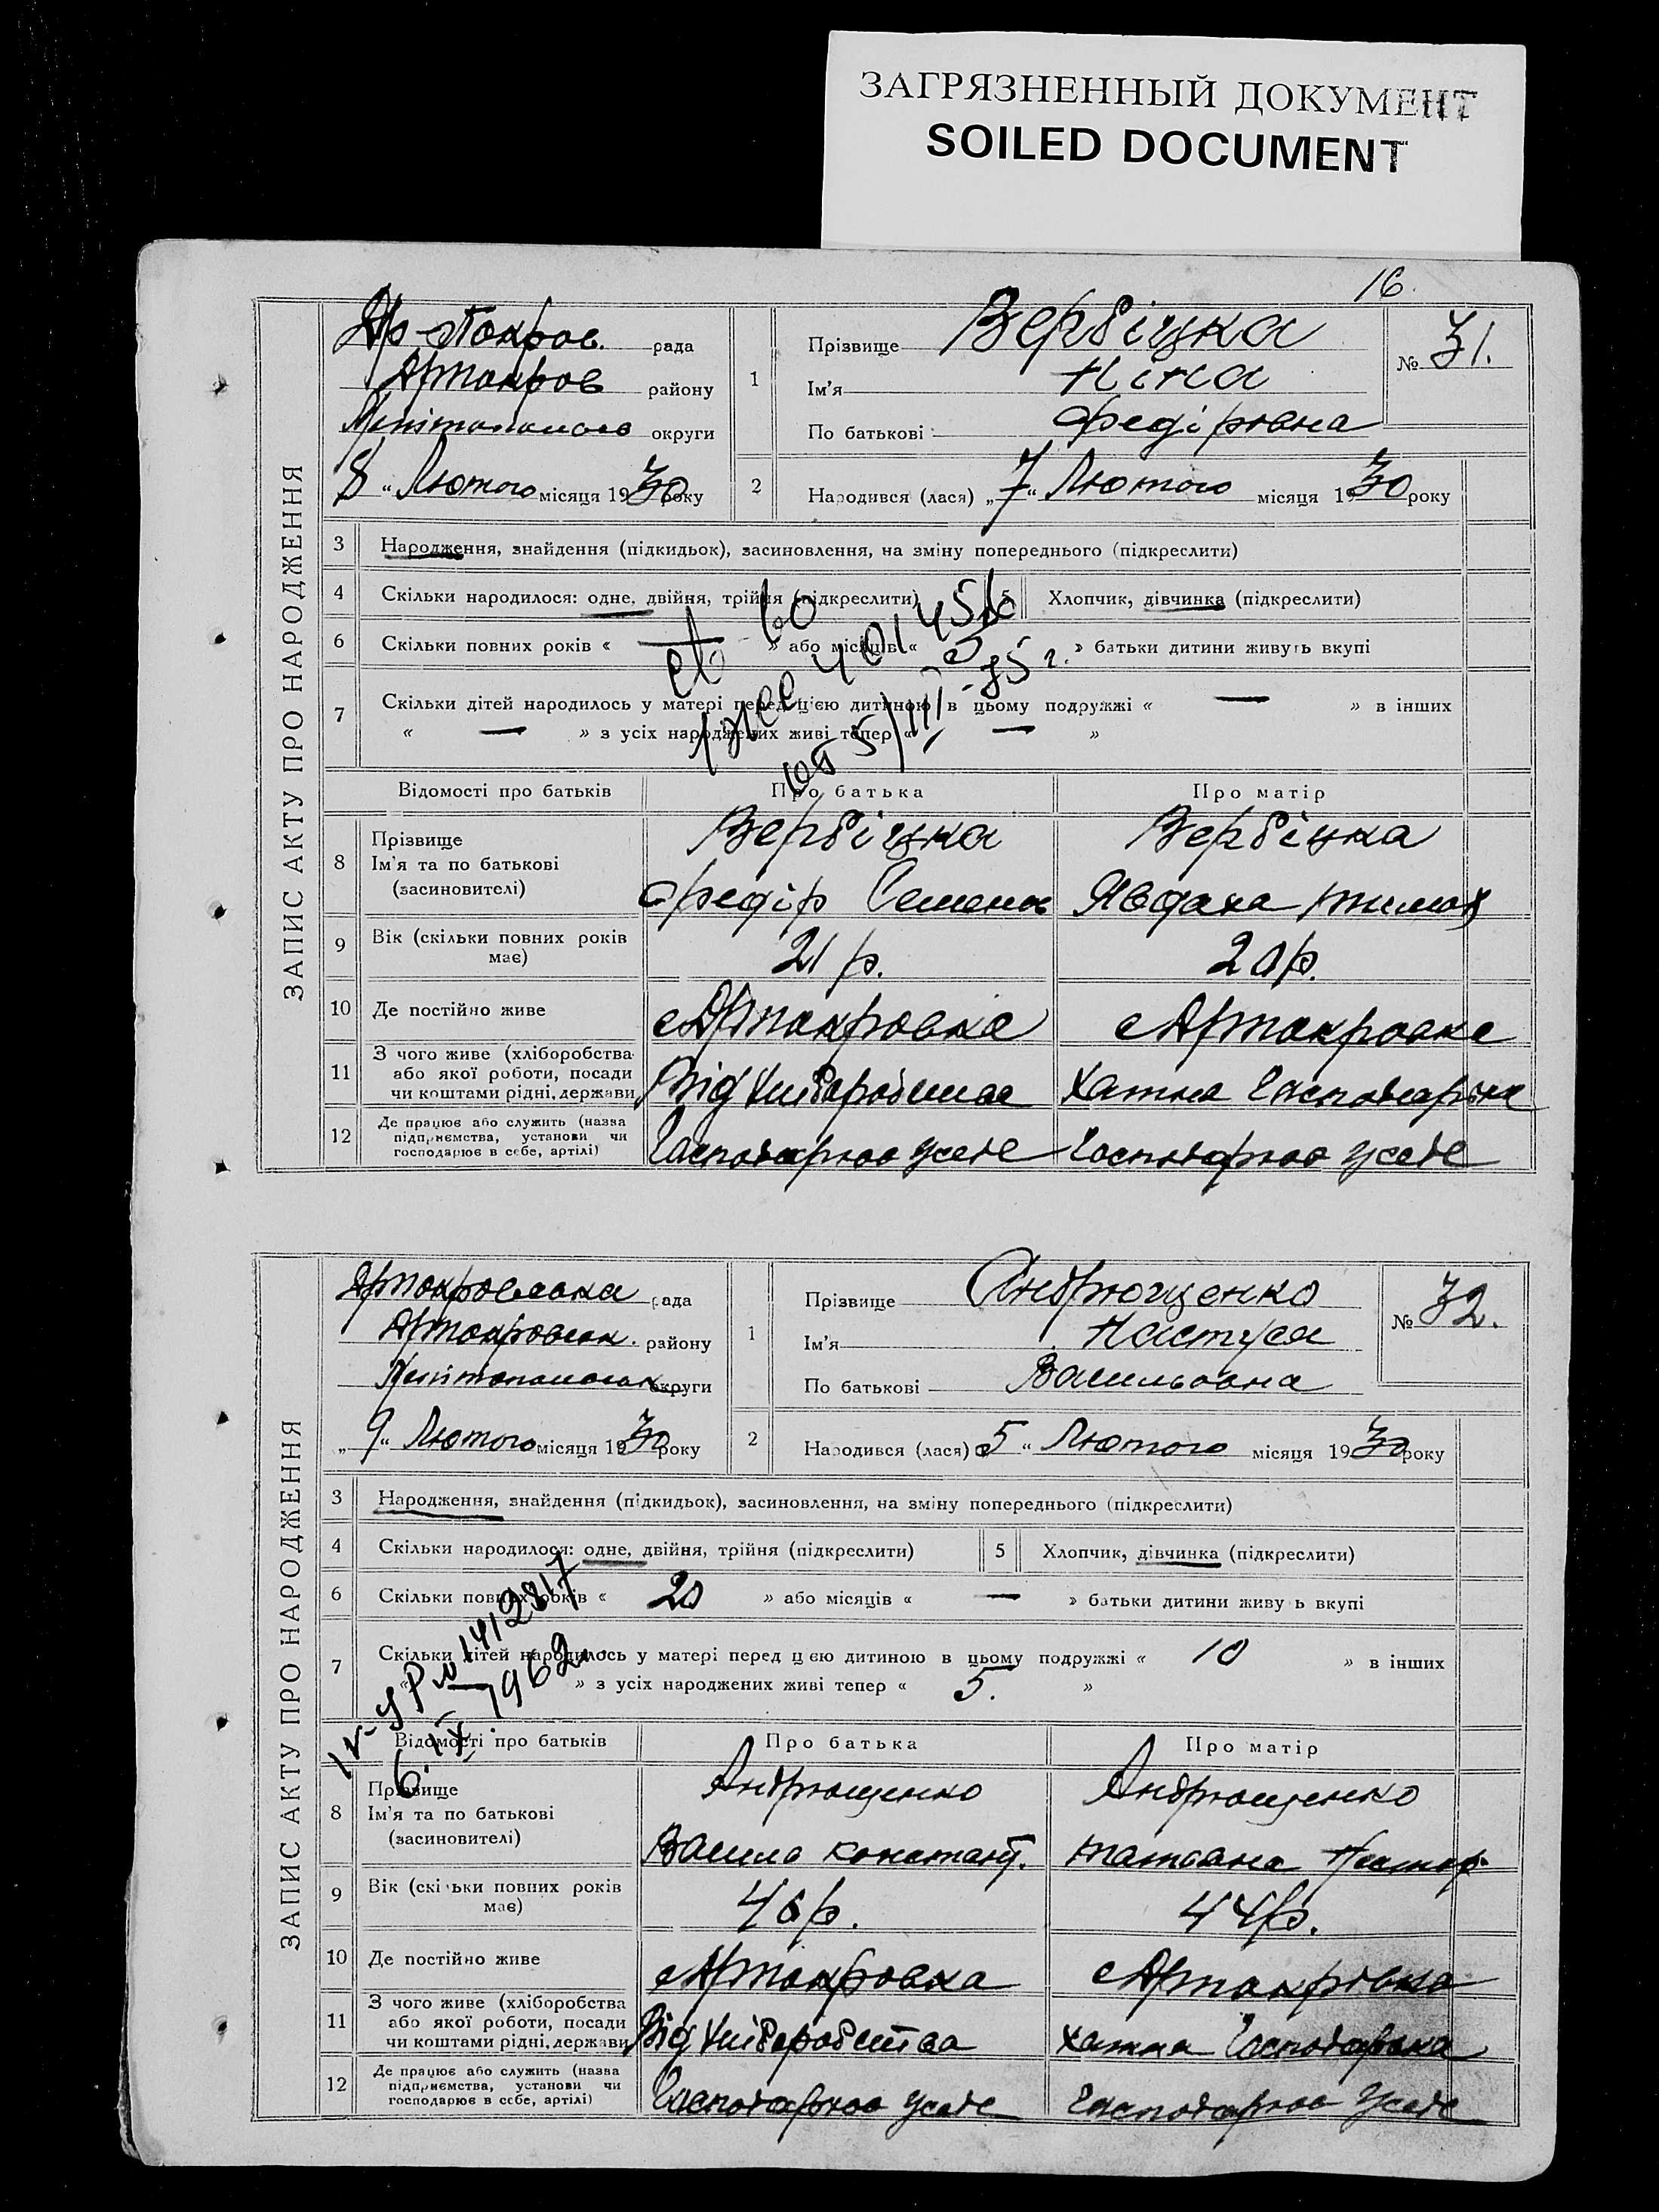 ЗАГРЯЗНЕННЫЙ ДОКУМЕНТ
SOILED DOCUMENT
16.
ЗАПИС АКТУ ПРО НАРОДЖЕННЯ
рада
району
округи
„8“ Лютого місяця 1930 року
1
Прізвище Вербіцка
Ім'я Ніна
По батькові Федіровна
№ 31.
2
Народився (лася) „7“ Лютого місяця 1930 року
3 Народження, знайдення (підкидьок), засиновлення, на зміну попереднього (підкреслити)
4 Скільки народилося: одне, двійня, трійня (підкреслити) 5 Хлопчик, дівчинка (підкреслити)
6 Скільки повних років « — » або місяців « » батьки дитини живуть вкупі
7 Скільки дітей народилось у матері перед цією дитиною в цьому подружжі « — » в інших
« — » з усіх народжених живі тепер « — »
Відомості про батьків Про батька Про матір
8 Прізвище Вербіцка Вербіцка
Ім'я та по батькові
(засиновителі) Федір Семенов Явдаха Тимоф
9 Вік (скільки повних років має) 21 р. 20 р.
10 Де постійно живе
11 З чого живе (хліборобства або якої роботи, посади чи коштами рідні, держави) Від Хліборобства Хатна Господарка
12 Де працює або служить (назва підприємства, установи чи господарює в себе, артілі) Господарює у себе Господарює у себе
ЗАПИС АКТУ ПРО НАРОДЖЕННЯ
рада
району
округи
„9“ Лютого місяця 1930 року
1
Прізвище Андрющенко
Ім'я Настуся
По батькові Васильовна
№ 32.
2
Народився (лася) „5“ Лютого місяця 1930 року
3 Народження, знайдення (підкидьок), засиновлення, на зміну попереднього (підкреслити)
4 Скільки народилося: одне, двійня, трійня (підкреслити) 5 Хлопчик, дівчинка (підкреслити)
6 Скільки повних років « 20 » або місяців « — » батьки дитини живуть вкупі
7 Скільки дітей народилось у матері перед цією дитиною в цьому подружжі « 10 » в інших
« — » з усіх народжених живі тепер « 5. »
6. IX 1962
Відомості про батьків Про батька Про матір
8 Прізвище Андрющенко Андрющенко
Ім'я та по батькові
(засиновителі) Васило Констант. Татяна Нестор
9 Вік (скільки повних років має) 46 р. 44 р.
10 Де постійно живе
11 З чого живе (хліборобства або якої роботи, посади чи коштами рідні, держави) Від Хліборобства Хатна Господарка
12 Де працює або служить (назва підприємства, установи чи господарює в себе, артілі) Господарює у себе Господарює у себе